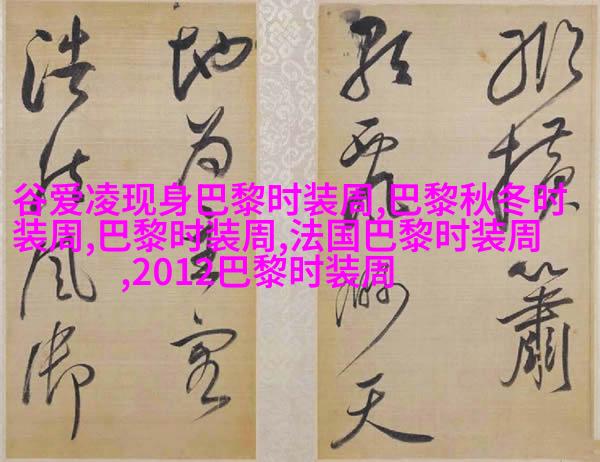 谷爱凌现身巴黎时装周,巴黎秋冬时
装周,巴黎时装周,法国巴黎时装周
,2012巴黎时装周
横簫
天
地为
浩然风御